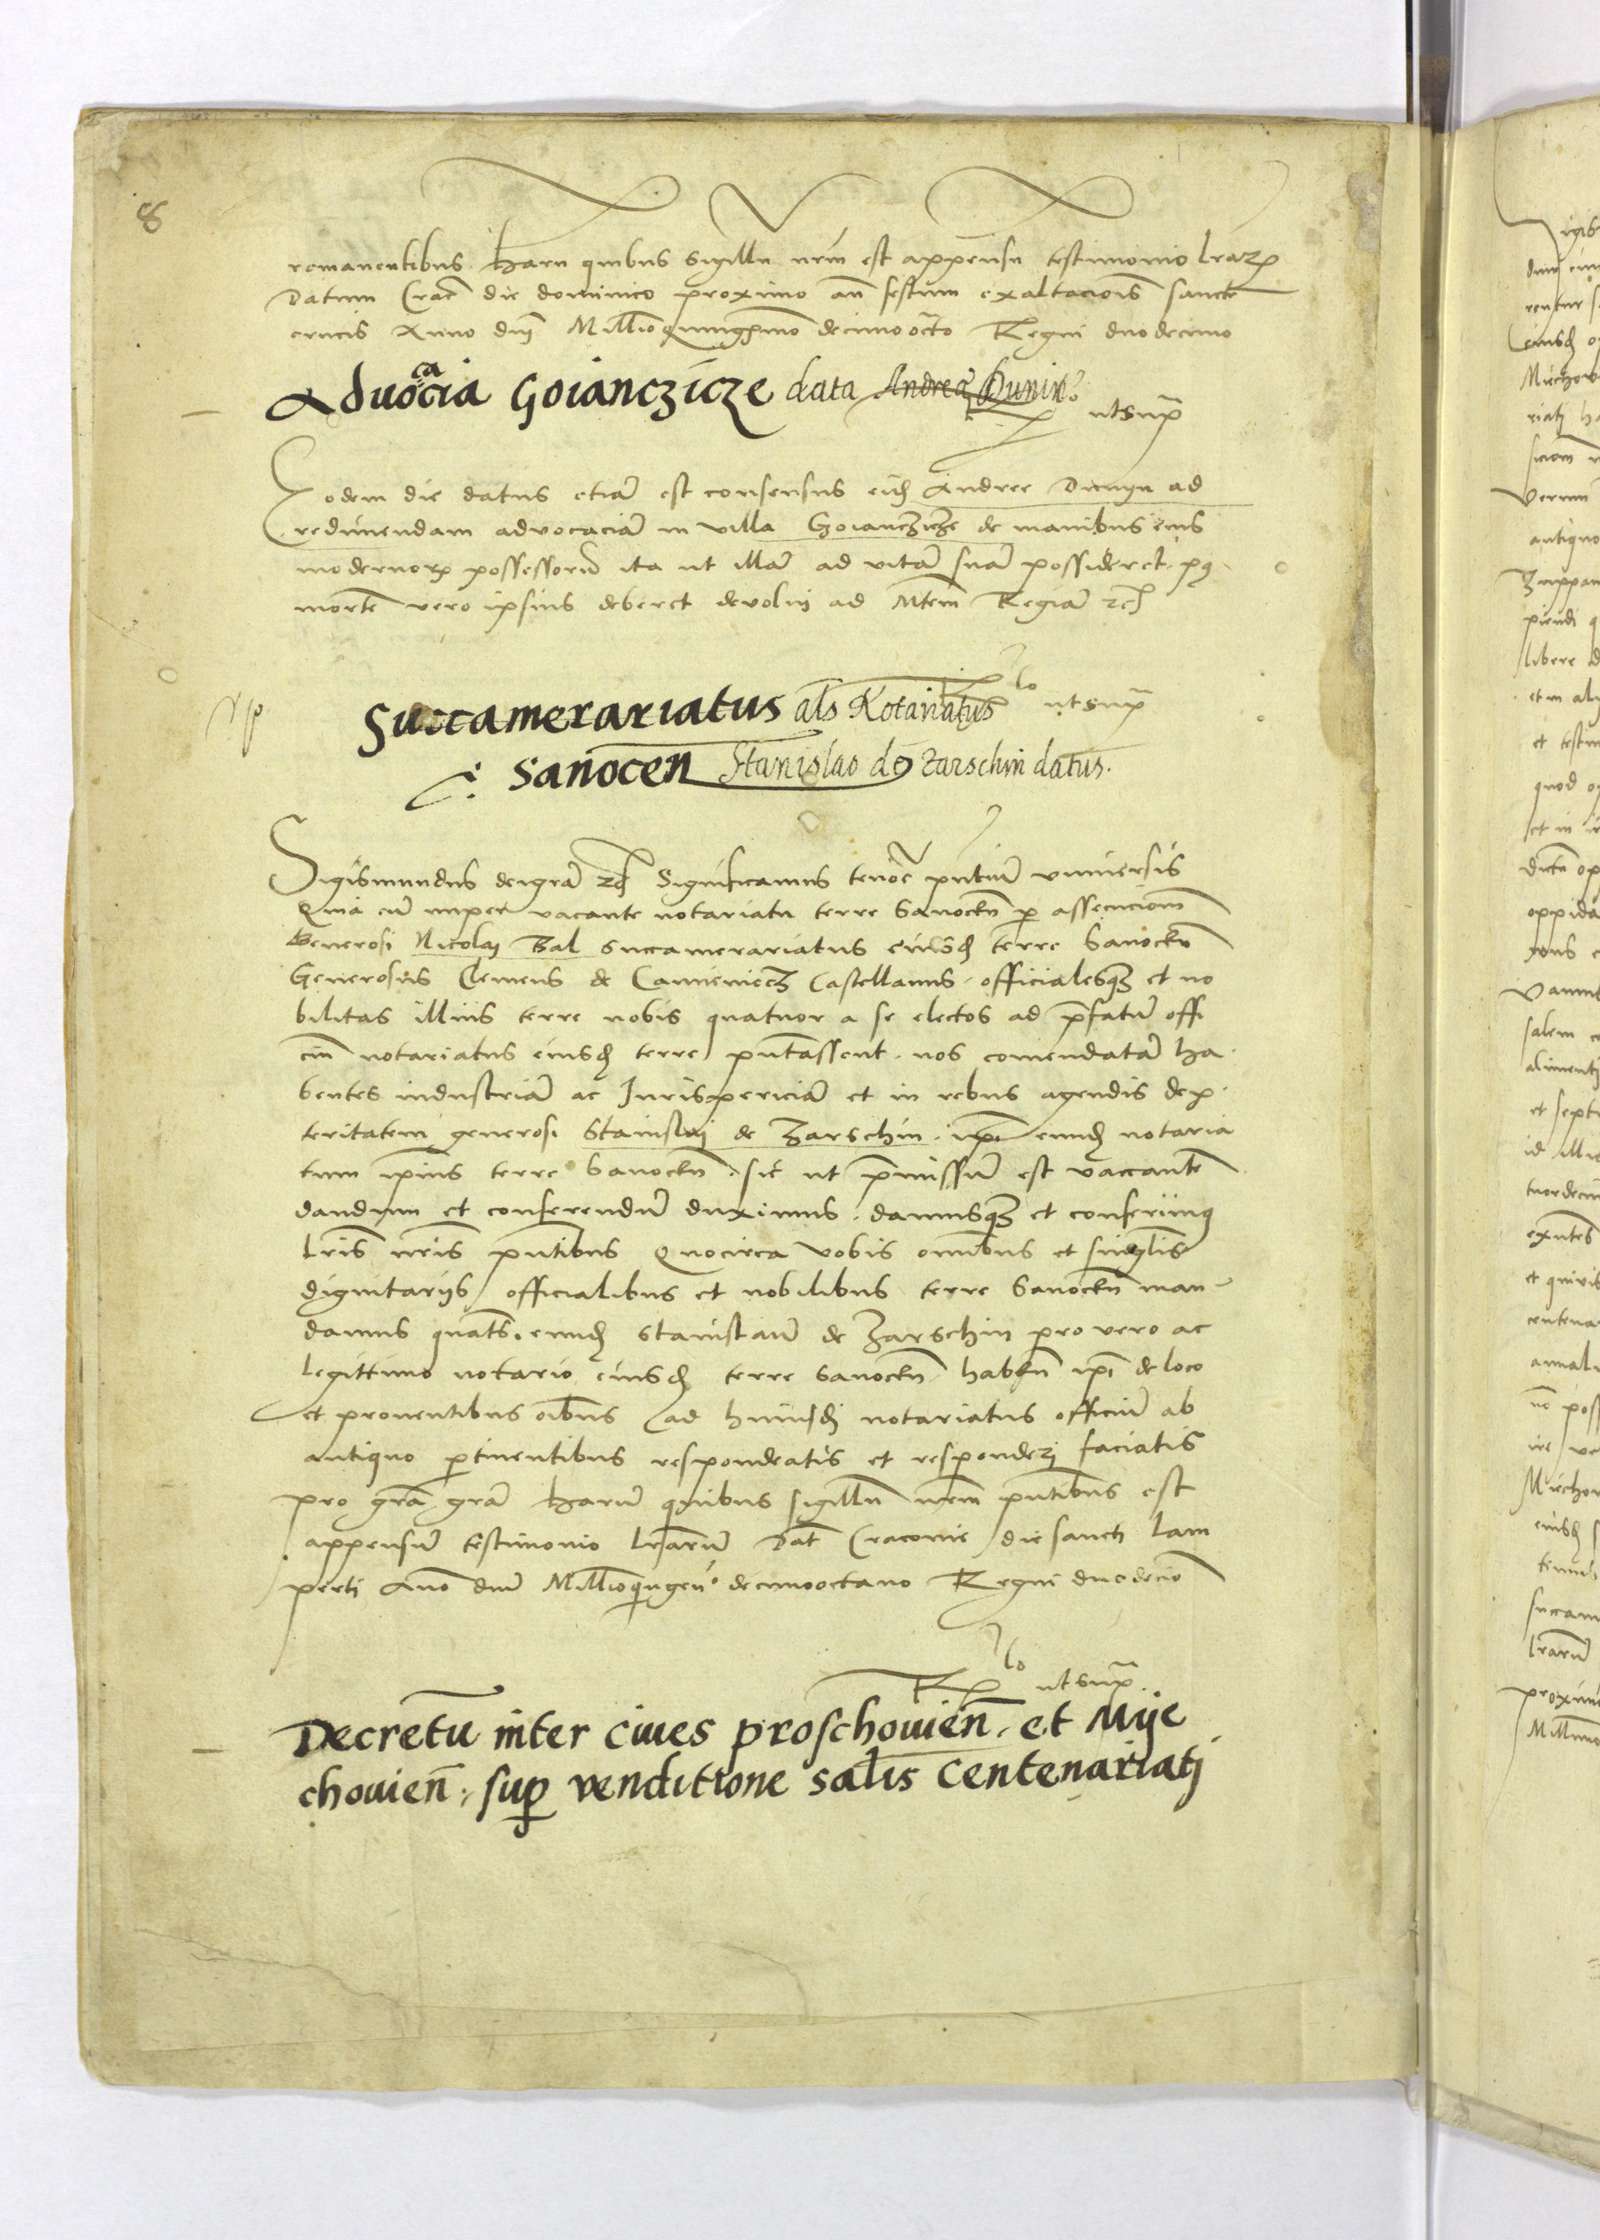 8
remanentibus. Haru quibus sigillu nrm est appensu testimonio lrarꝝ
Datum Crac die dominico proximo an festum exaltacionis sancte
crucis Anno dni Millioquingmo decimooctavo Regni duodecimo
Aduocacia Goianczicze data Andree Dunin
utsup
Eodem die datus etia est consensus eid Andree Duniyn ad
redimendam advocacia in villa Goianczicze de manibus eius
modernorꝝ possessoru ita ut illa ad vita sua possideret. pq
morte vero ipsius deberet devolvi ad Mtem Regia zc
utsup
Succamerariatus als Notariatus
Sanocen Stanislao de Zarschin datus.
Sigismundus dei gra zc Significamus tenore pntium universis
Quia cu nuper vacante notariatu terre Sanocen p assecucionem
Generosi Nicolai Bal succamerariatus eiusd terre Sanocen
Generosus Clemens de Camieniecz Castellanus. officialesqz et no
bilitas illius terre nobis quatuor a se electos ad pfatu offi
ciu notariatus eiusd terre pntassent. nos comendata ha
bentes industria ac Jurispericia et in rebus agendis dex
teritatem generosi Stanislai de Zarschin. ipi eund notaria
tum ipius terre Sanocen. sic ut pmissu est vaccante
dandum et conferendu duximus. damusqz et conferimq
lris nris pntibus Quocirca vobis omibus et singulis
dignitariis officialibus et nobilibus terre Sanocen man
damus quats. eund Stanislau de Zarschin pro vero ac
legittimo notario eiusd terre Sanocen habentes ipi de loco
et proventibus oibus ad huiusdi notariatus officiu ab
antiquo ptinentibus respondeatis et responderi faciatis
pro gra gra Haru quibus sigillu nrm pntibus est
appensu testimonio lraru Dat Cracovie die sancti Lam
perti Ano dni Millioquingen decimooctavo Regni duodecio
utsup
Decretu inter ciues proschouien. et Mije
chouien. sup venditione salis centenariati